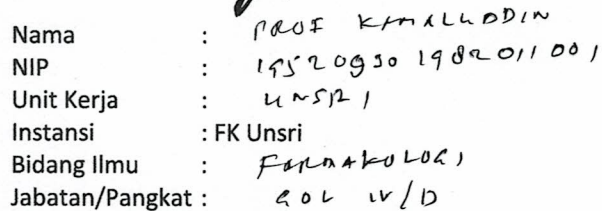 Nama : PROF KAMALUDDIN
NIP : 19520930 198201 1 001
Unit Kerja : UNSRI
Instansi : FK Unsri
Bidang Ilmu : FARMAKOLOGI
Jabatan/Pangkat : GOL IV/D